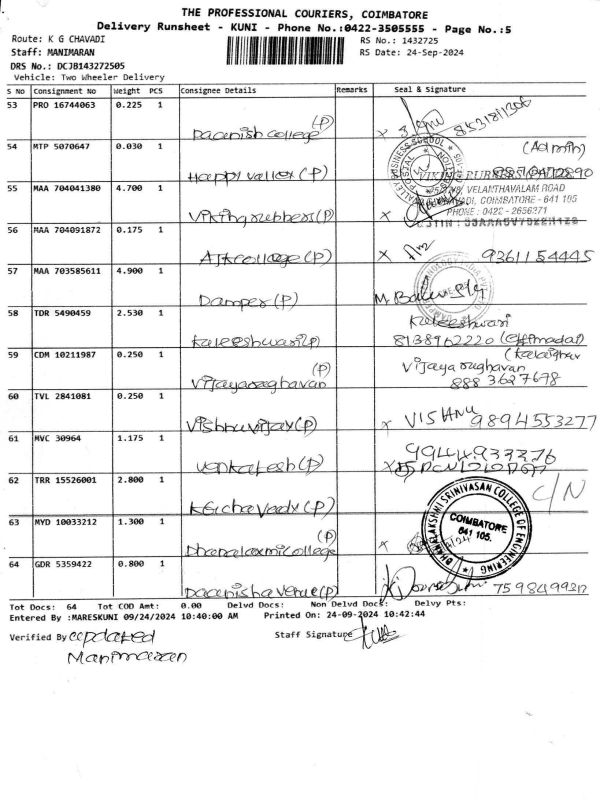 THE PROFESSIONAL COURIERS, COIMBATORE
Delivery Runsheet - KUNI - Phone No.:0422-3505555 - Page No.:5
Route: K G CHAVADI
RS No.: 1432725
Staff: MANIMARAN
RS Date: 24-Sep-2024
DRS No.: DCJB143272505
Vehicle: Two Wheeler Delivery
S No Consignment No Weight PCS Consignee Details Remarks Seal & Signature
53 PRO 16744063 0.225 1
(P)
Daanish college
54 MTP 5070647 0.030 1
(Admin)
Happy valley (P)
55 MAA 704041380 4.700 1
VELANTHAVALAM ROAD
COIMBATORE - 641 105
PHONE : 0422 - 2656371
Viking rubbers (P)
56 MAA 704091872 0.175 1
AJK college (P) x 9361154445
57 MAA 703585611 4.900 1
Damper (P)
58 TDR 5490459 2.530 1
Kaleeshwari
Kaleeshwari (P) 8138962220
59 CDM 10211987 0.250 1
(P)
Vijayaraghavan
Vijayaraghavan
888 3627678
60 TVL 2841081 0.250 1
Vishnu vijay (P) x VISHNU 9894553277
61 MVC 30964 1.175 1
9944933376
Venkatesh (P)
62 TRR 15526001 2.800 1
C/N
KG chavady (P)
63 MYD 10033212 1.300 1
(P)
Dhanalaxmi college
DHANALAKSHMI SRINIVASAN COLLEGE OF ENGINEERING
COIMBATORE
641 105.
64 GDR 5359422 0.800 1
Tot Docs: 64 Tot COD Amt: 0.00 Delvd Docs: Non Delvd Docs: Delvy Pts:
Entered By :MARESKUNI 09/24/2024 10:40:00 AM Printed On: 24-09-2024 10:42:44
Verified By updated Staff Signature
Manimaran